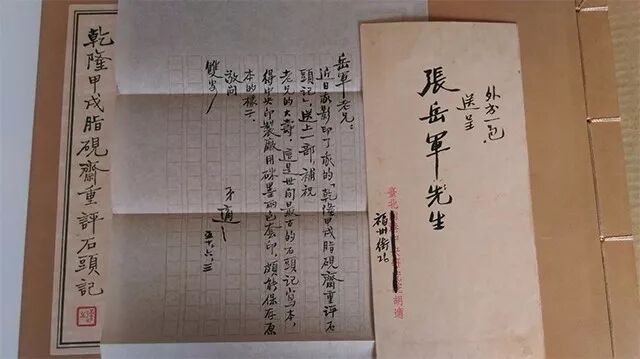 外書一包
送呈
張岳軍先生
臺北 胡適
福州街26
岳軍老兄：
近日影印了我的「乾隆甲戌脂硯齋重評石
頭記」，送上一部，補祝
老兄的大壽，這是世間最古的石頭記寫本，
得中央印製廠用硃墨兩色套印，頗能保存原
本的樣子。
敬問
雙安
弟 適
五十、六、三
乾隆甲戌脂硯齋重評石頭記